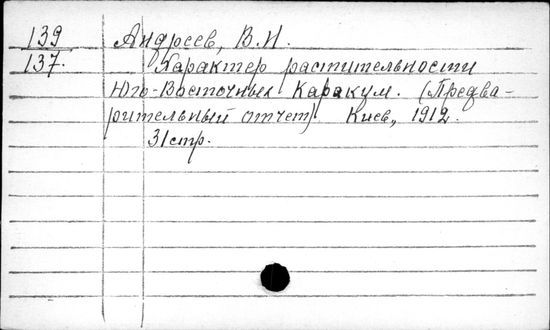 139 Андреев, В.И.
137. Характер растительности
Юго-Восточных Каракум. (Предва-
рительный отчет) Киев, 1912.
31 стр.